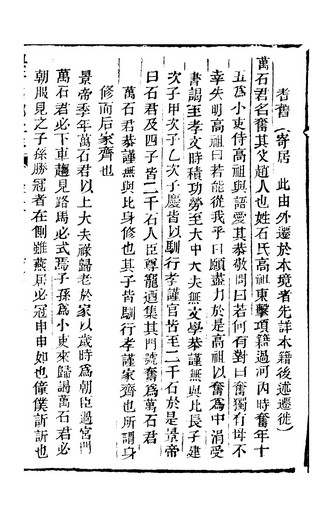 耆舊(寄居 此由外遷於本境者先詳本籍後述遷徙)
萬石君名奮其父趙人也姓石氏高祖東擊項籍過河內時奮年十
五為小吏侍高祖高祖與語愛其恭敬問曰若何有對曰奮獨有母不
幸失明高祖曰若能從我乎曰願盡力於是高祖以奮為中涓受
書謁至孝文時積功勞至大中大夫無文學恭謹無與比長子建
次子甲次子乙次子慶皆以馴行孝謹官皆至二千石於是景帝
曰石君及四子皆二千石人臣尊寵迺集其門號奮為萬石君
萬石君恭謹無與比身修也其子皆馴行孝謹家齊也所謂身
修而后家齊也
景帝季年萬石君以上大夫祿歸老於家以歲時為朝臣過宮門
萬石君必下車趨見路馬必式焉子孫為小吏來歸謁萬石君必
朝服見之子孫勝冠者在側雖燕居必冠申申如也僮僕訢訢也